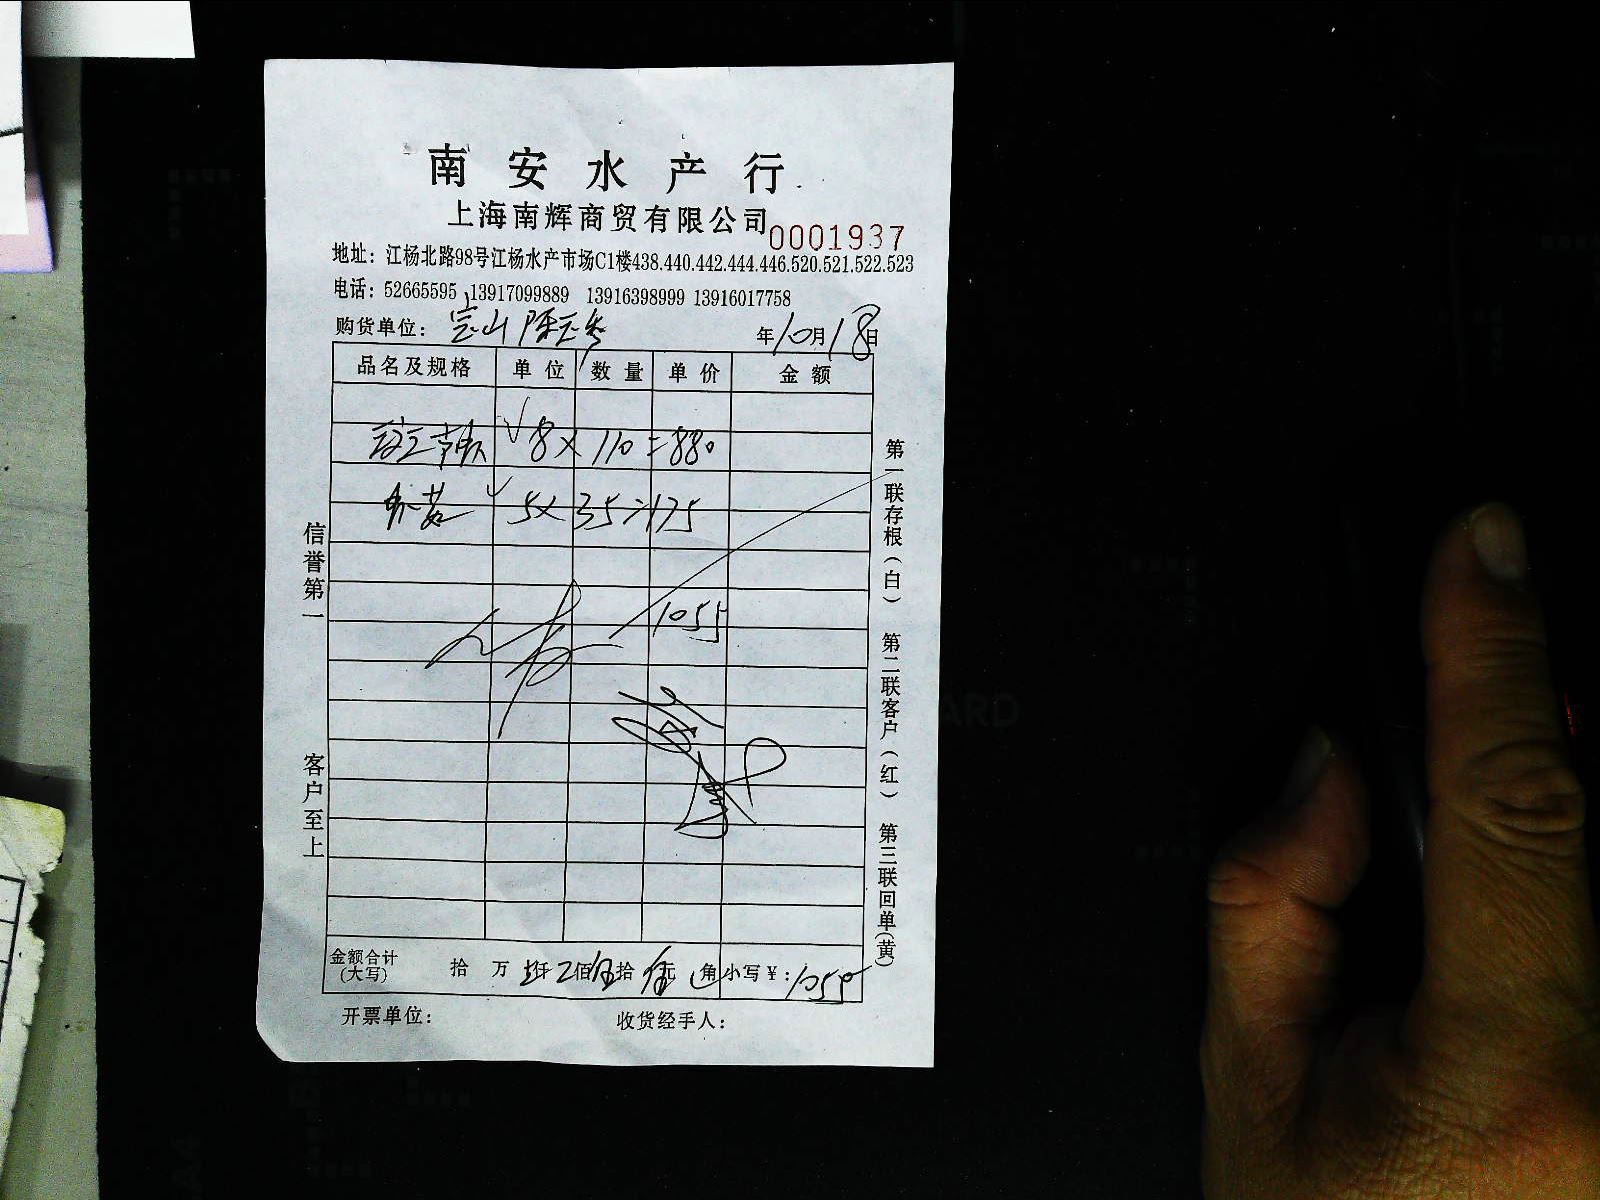 南安水产行
上海南辉商贸有限公司 0001937
地址：江杨北路98号江杨水产市场C1楼438.440.442.444.446.520.521.522.523
电话：52665595 13917099889 13916398999 13916017758
购货单位：宝山 年10月18日
品名及规格 单位 数量 单价 金额
8×110=880
5×35=175
1055
金额合计(大写) 拾 万 仟 佰 拾 元 角 小写￥：1055
开票单位： 收货经手人：
信誉第一 客户至上
第一联存根（白） 第二联客户（红） 第三联回单(黄)
ARD